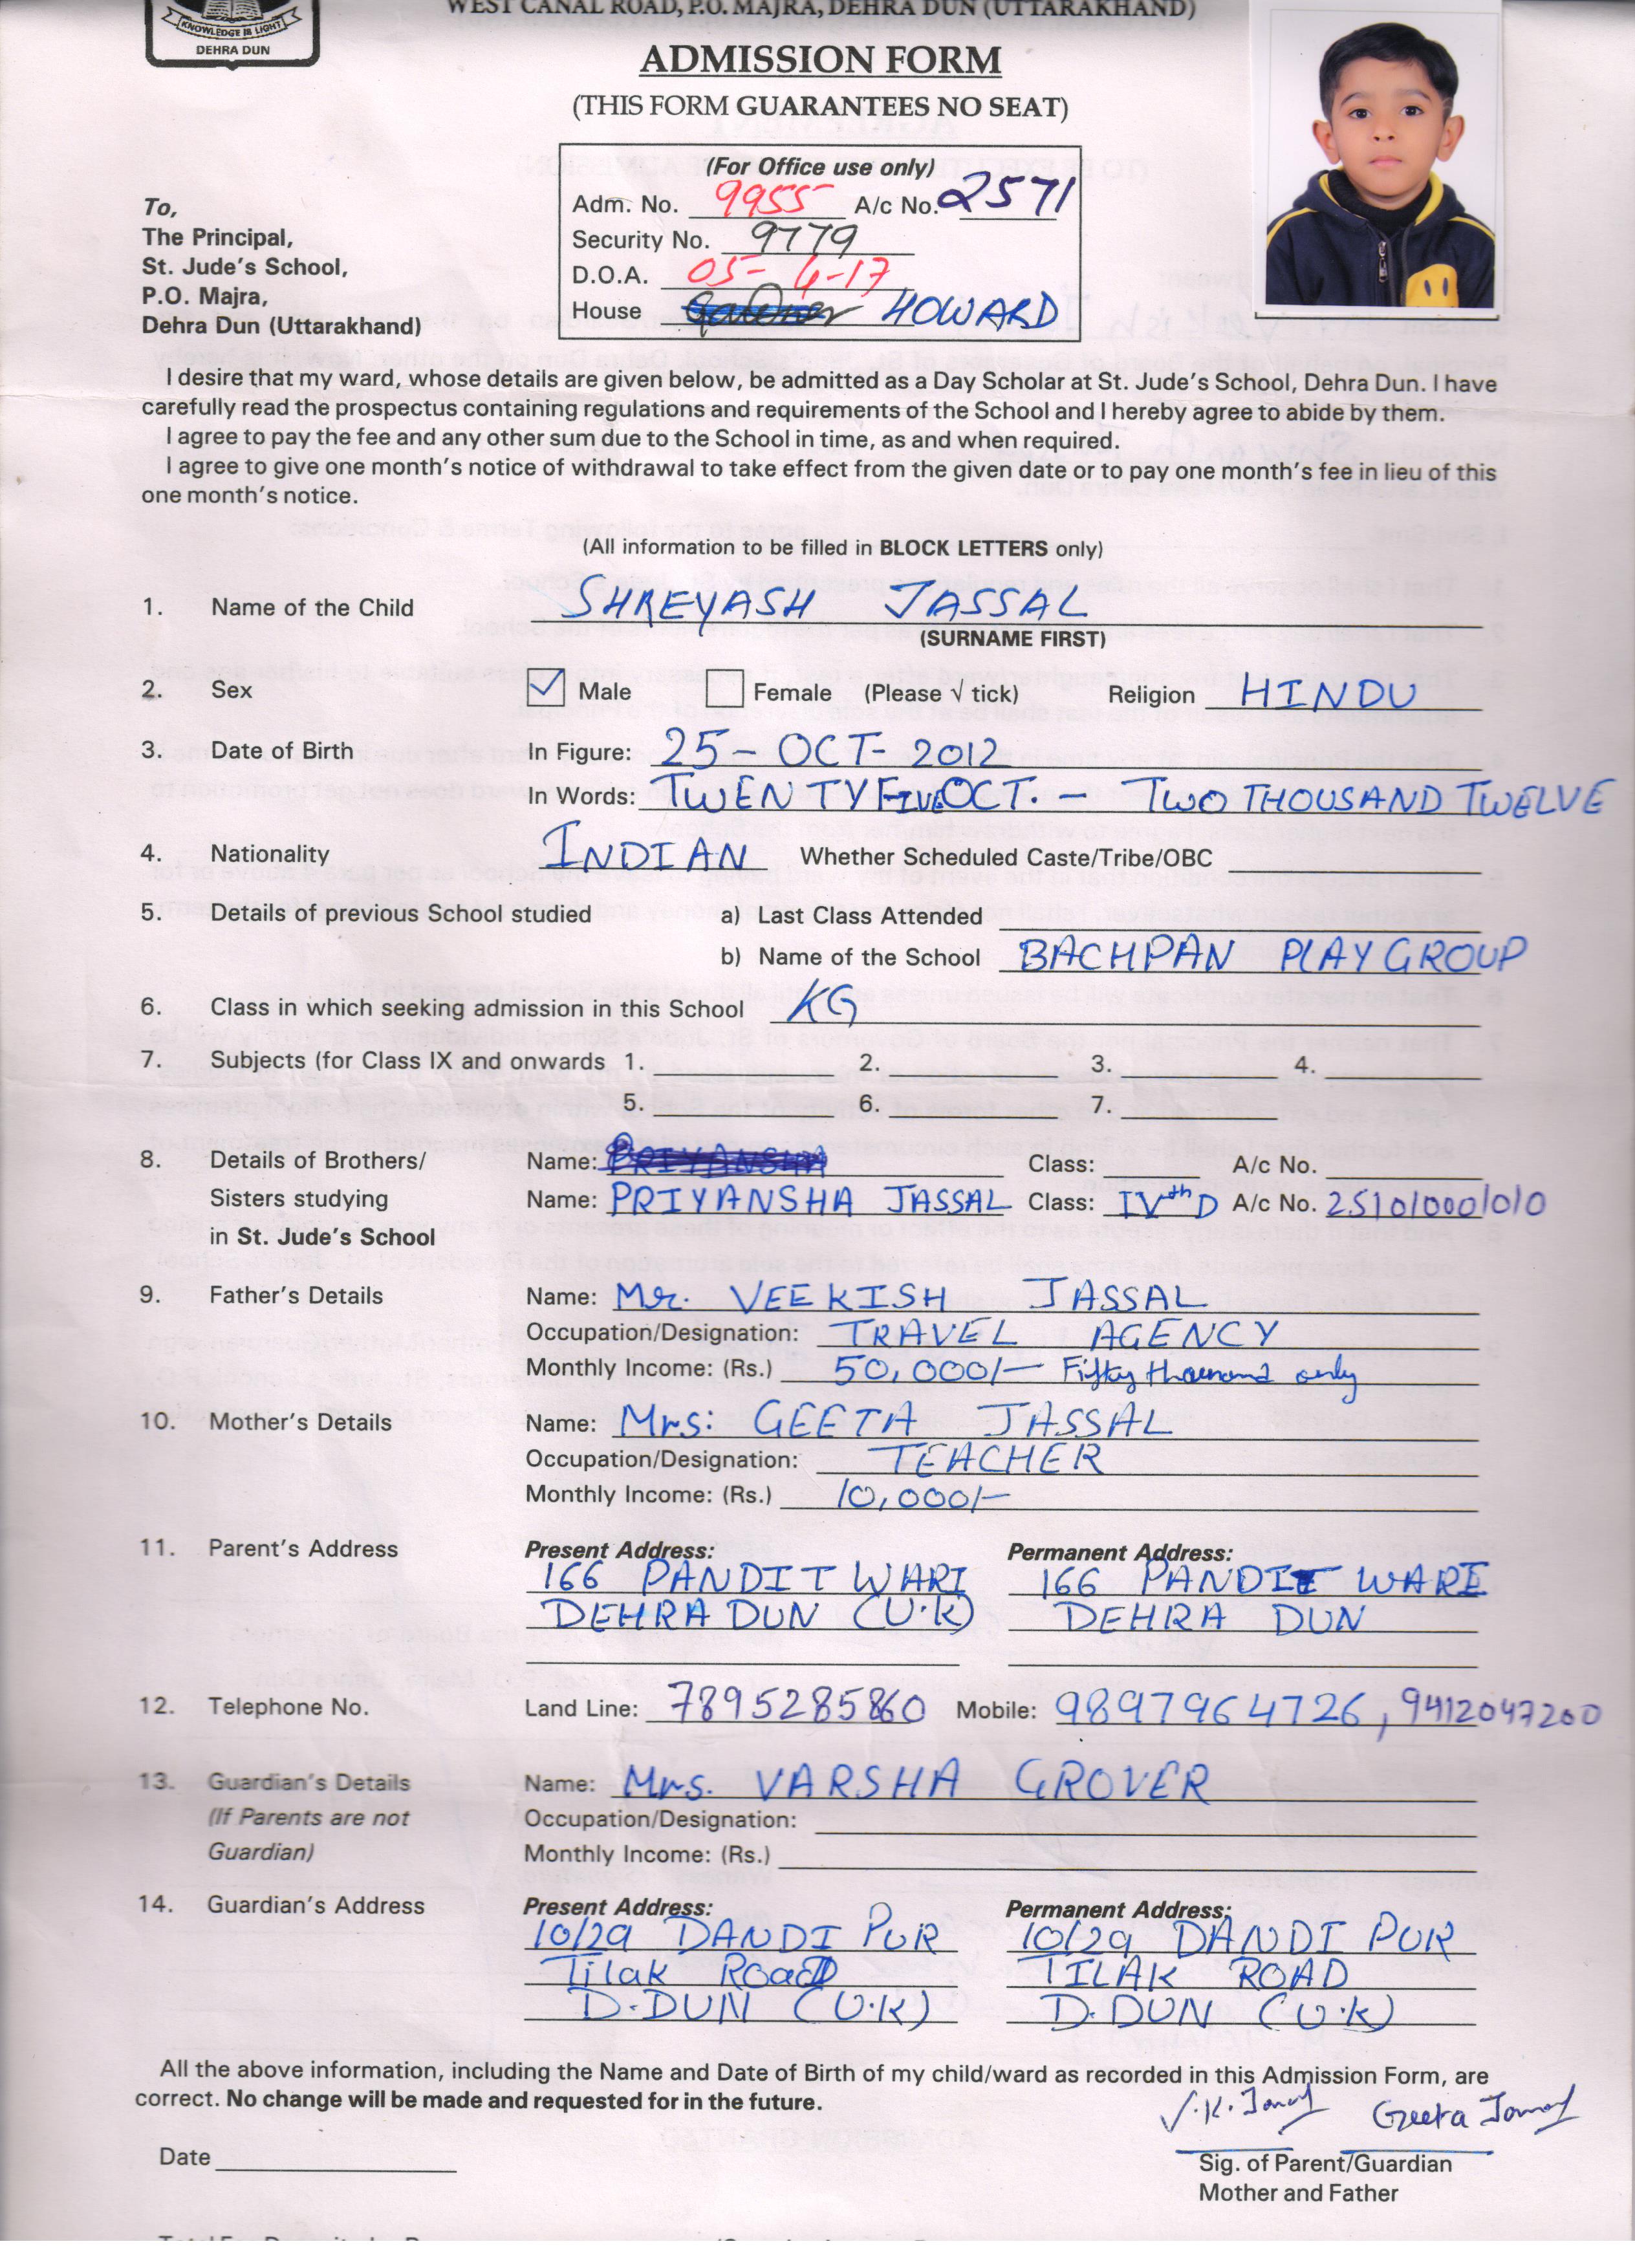 WEST CANAL ROAD, P.O. MAJRA, DEHRA DUN (UTTARAKHAND)
KNOWLEDGE IS LIGHT
DEHRA DUN
ADMISSION FORM
(THIS FORM GUARANTEES NO SEAT)
(For Office use only)
Adm. No. 9955 A/c No. 2571
Security No. 9779
D.O.A. 05-4-17
House HOWARD
To,
The Principal,
St. Jude's School,
P.O. Majra,
Dehra Dun (Uttarakhand)
I desire that my ward, whose details are given below, be admitted as a Day Scholar at St. Jude's School, Dehra Dun. I have
carefully read the prospectus containing regulations and requirements of the School and I hereby agree to abide by them.
I agree to pay the fee and any other sum due to the School in time, as and when required.
I agree to give one month's notice of withdrawal to take effect from the given date or to pay one month's fee in lieu of this
one month's notice.
(All information to be filled in BLOCK LETTERS only)
1. Name of the Child SHREYASH JASSAL
(SURNAME FIRST)
2. Sex ☑ Male ☐ Female (Please √ tick) Religion HINDU
3. Date of Birth In Figure: 25-OCT-2012
In Words: TWENTY FIVE OCT. - TWO THOUSAND TWELVE
4. Nationality INDIAN Whether Scheduled Caste/Tribe/OBC
5. Details of previous School studied a) Last Class Attended
b) Name of the School BACHPAN PLAY GROUP
6. Class in which seeking admission in this School KG
7. Subjects (for Class IX and onwards 1. 2. 3. 4.
5. 6. 7.
8. Details of Brothers/ Name: PRIYANSHA Class: A/c No.
Sisters studying Name: PRIYANSHA JASSAL Class: IVth D A/c No. 251010001010
in St. Jude's School
9. Father's Details Name: Mr. VEEKISH JASSAL
Occupation/Designation: TRAVEL AGENCY
Monthly Income: (Rs.) 50,000/- Fifty thousand only
10. Mother's Details Name: Mrs: GEETA JASSAL
Occupation/Designation: TEACHER
Monthly Income: (Rs.) 10,000/-
11. Parent's Address Present Address: Permanent Address:
166 PANDIT WARI 166 PANDIT WARI
DEHRA DUN (U.K) DEHRA DUN
12. Telephone No. Land Line: 7895285860 Mobile: 9897964726, 9412047200
13. Guardian's Details Name: Mrs. VARSHA GROVER
(If Parents are not Occupation/Designation:
Guardian) Monthly Income: (Rs.)
14. Guardian's Address Present Address: Permanent Address:
10/29 DANDI PUR 10/29 DANDI PUR
Tilak Road TILAK ROAD
D.DUN (U.K) D.DUN (U.K)
All the above information, including the Name and Date of Birth of my child/ward as recorded in this Admission Form, are
correct. No change will be made and requested for in the future.
Geeta
Date
Sig. of Parent/Guardian
Mother and Father